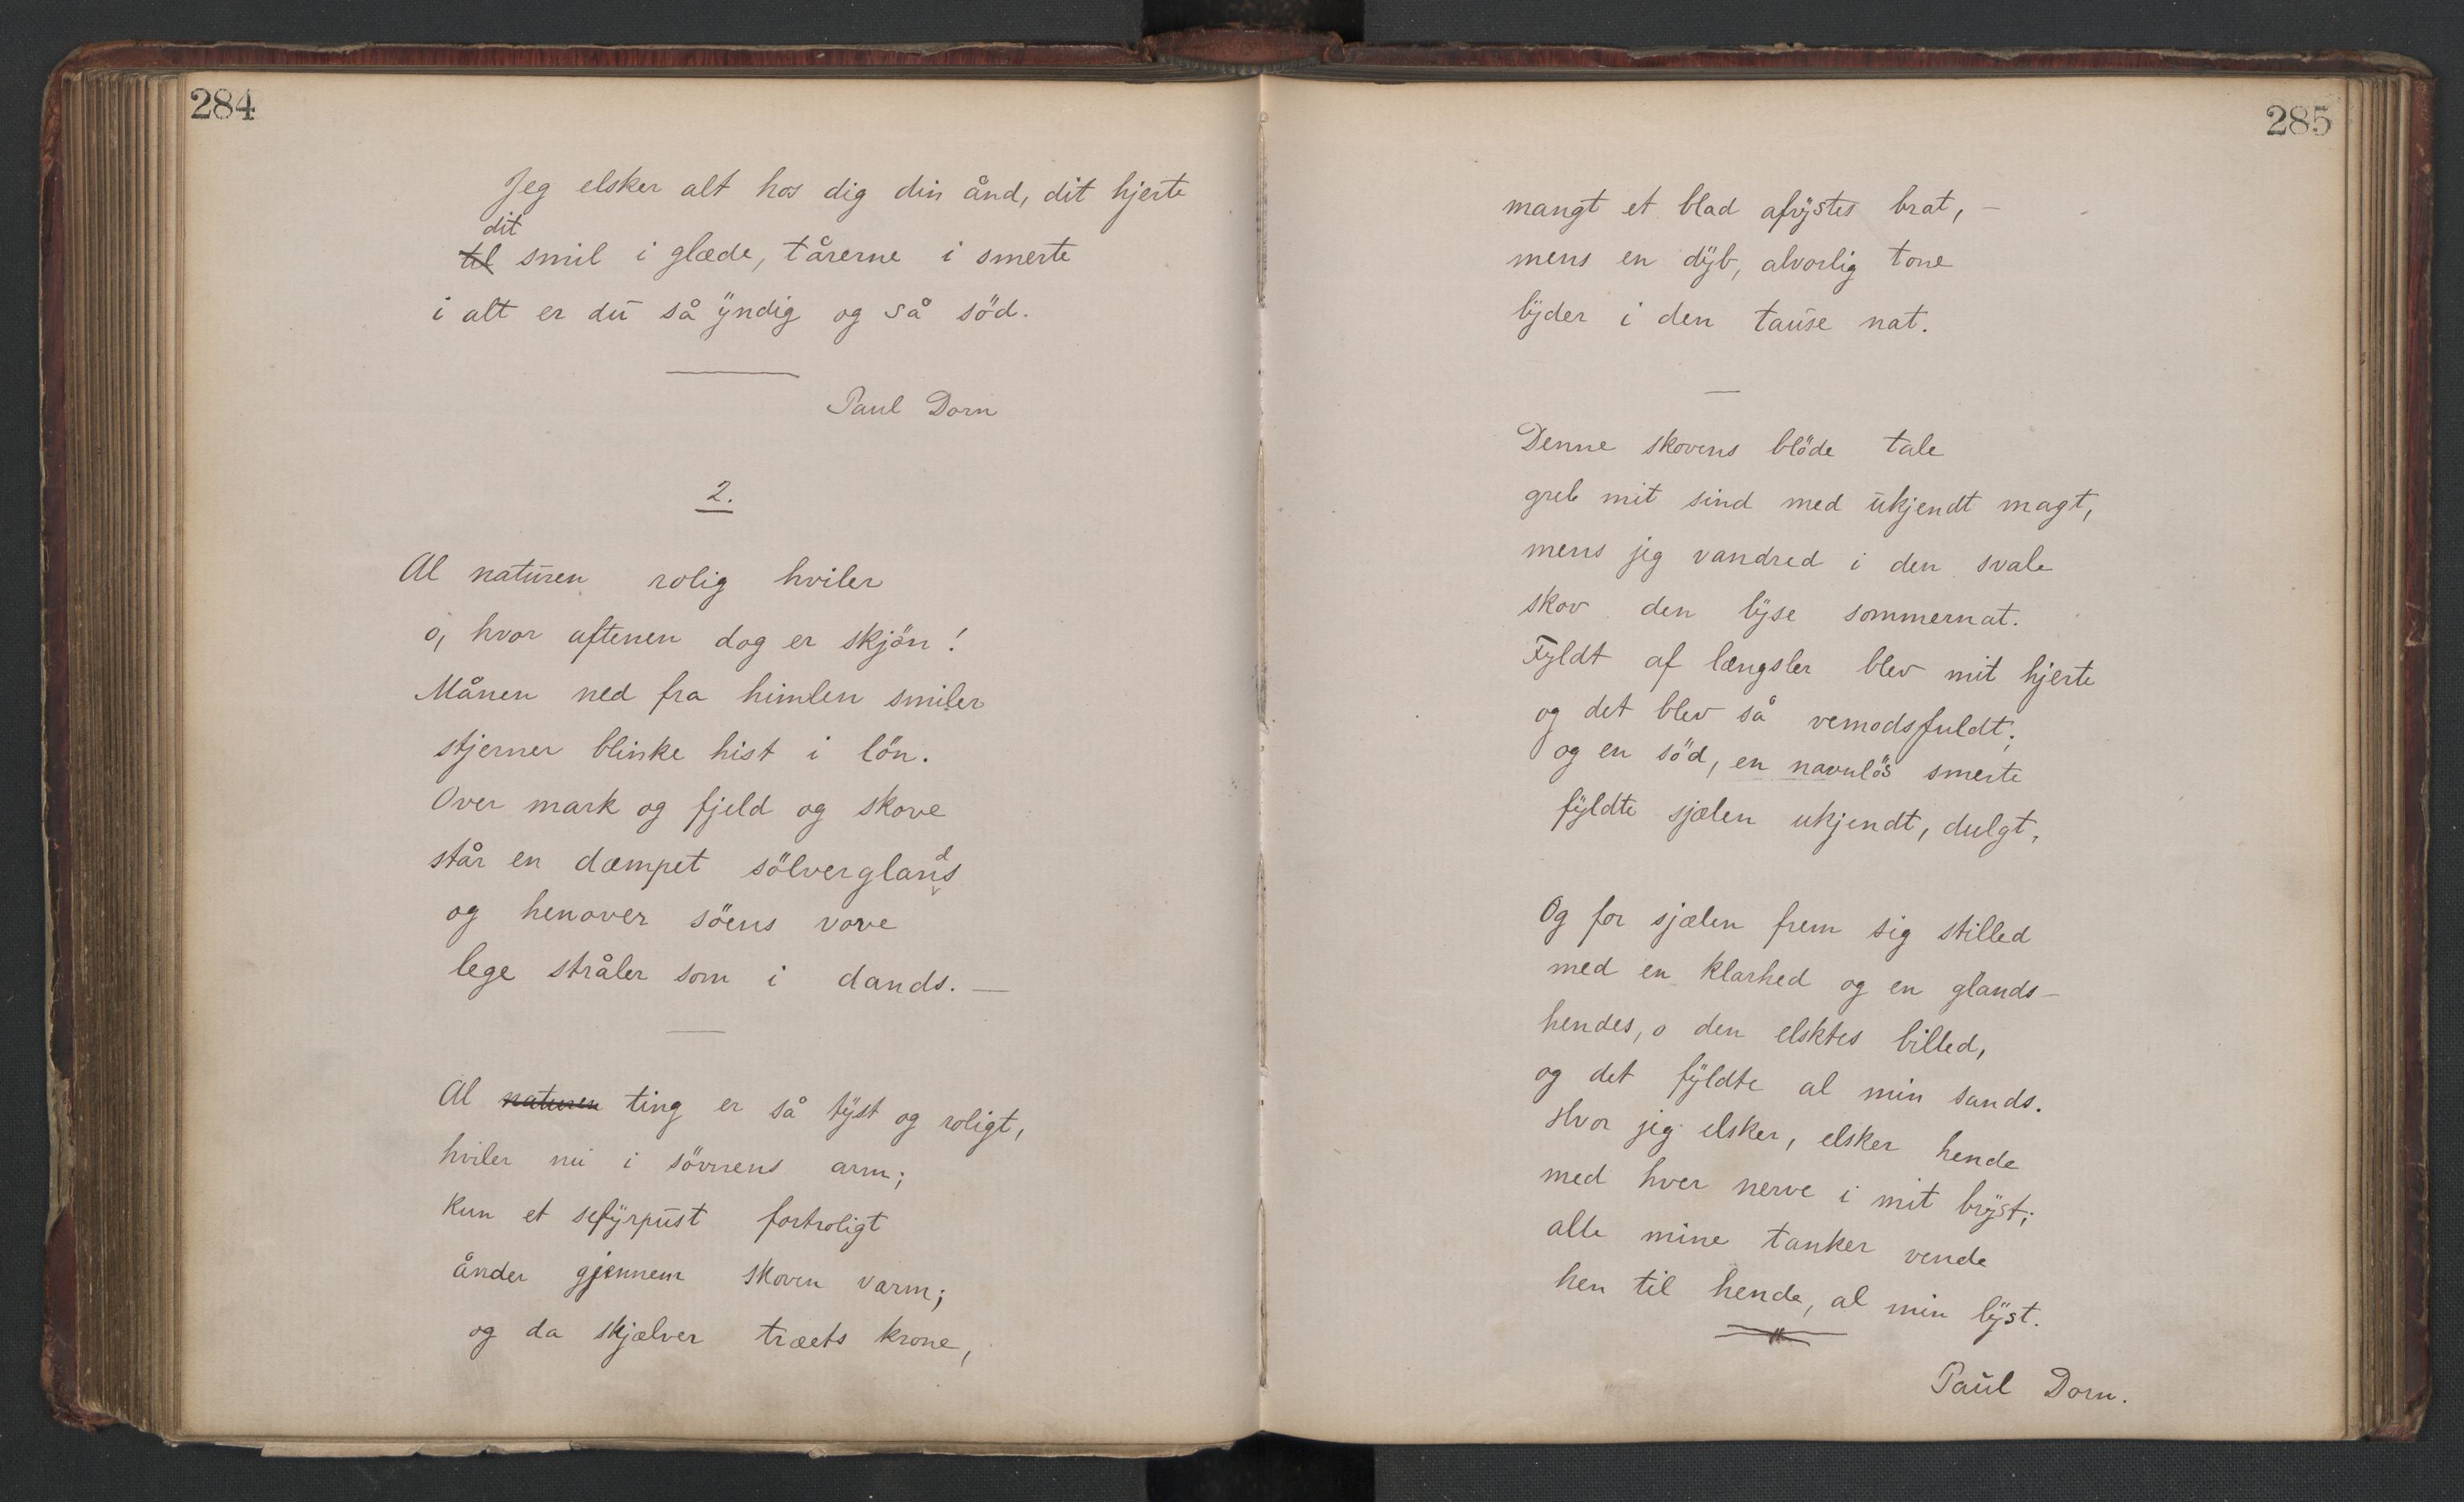 284
Jeg elsker alt hos dig din ånd, dit hjerte
dit
til smil i glæde, tårerne i smerte
i alt er dū så ÿndig og så söd.
Paul Dorn
2.
Al natūren rolig hviler
o, hvor aftenen dog er skjön!
Månen ned fra himlen smiler
stjerner blinke hist i lön.
Over mark og fjeld og skove
står en dæmpet sölverglands
og henover söens vove
lege stråler som i dands. —
Al naturen ting er så tÿst og roligt,
hviler nū i sövnens arm;
Kun et sefÿrpūst fortroligt
ånder gjennem skoven varm;
og da skjælver træets krone,
285
mangt et blad afrÿstes brat, —
mens en dÿb, alvorlig tone
lÿder i den taūse nat.
—
Denne skovens blöde tale
greb mit sind med ūkjendt magt,
mens jeg vandred i den svale
skov den lÿse sommernat.
Fyldt af længsler blev mit hjerte
og det blev så vemodsfuldt;
og en söd, en navnlös smerte
fÿldte sjælen ukjendt, dulgt,
Og for sjælen frem sig stilled
med en klarhed og en glands—
hendes, o den elsktes billed,
og det fÿldte al min sands.
Hvor jeg elsker, elsker hende
med hver nerve i mit brÿst;
alle mine tanker vende
hen til hende, al min lÿst.
Paūl Dorn.